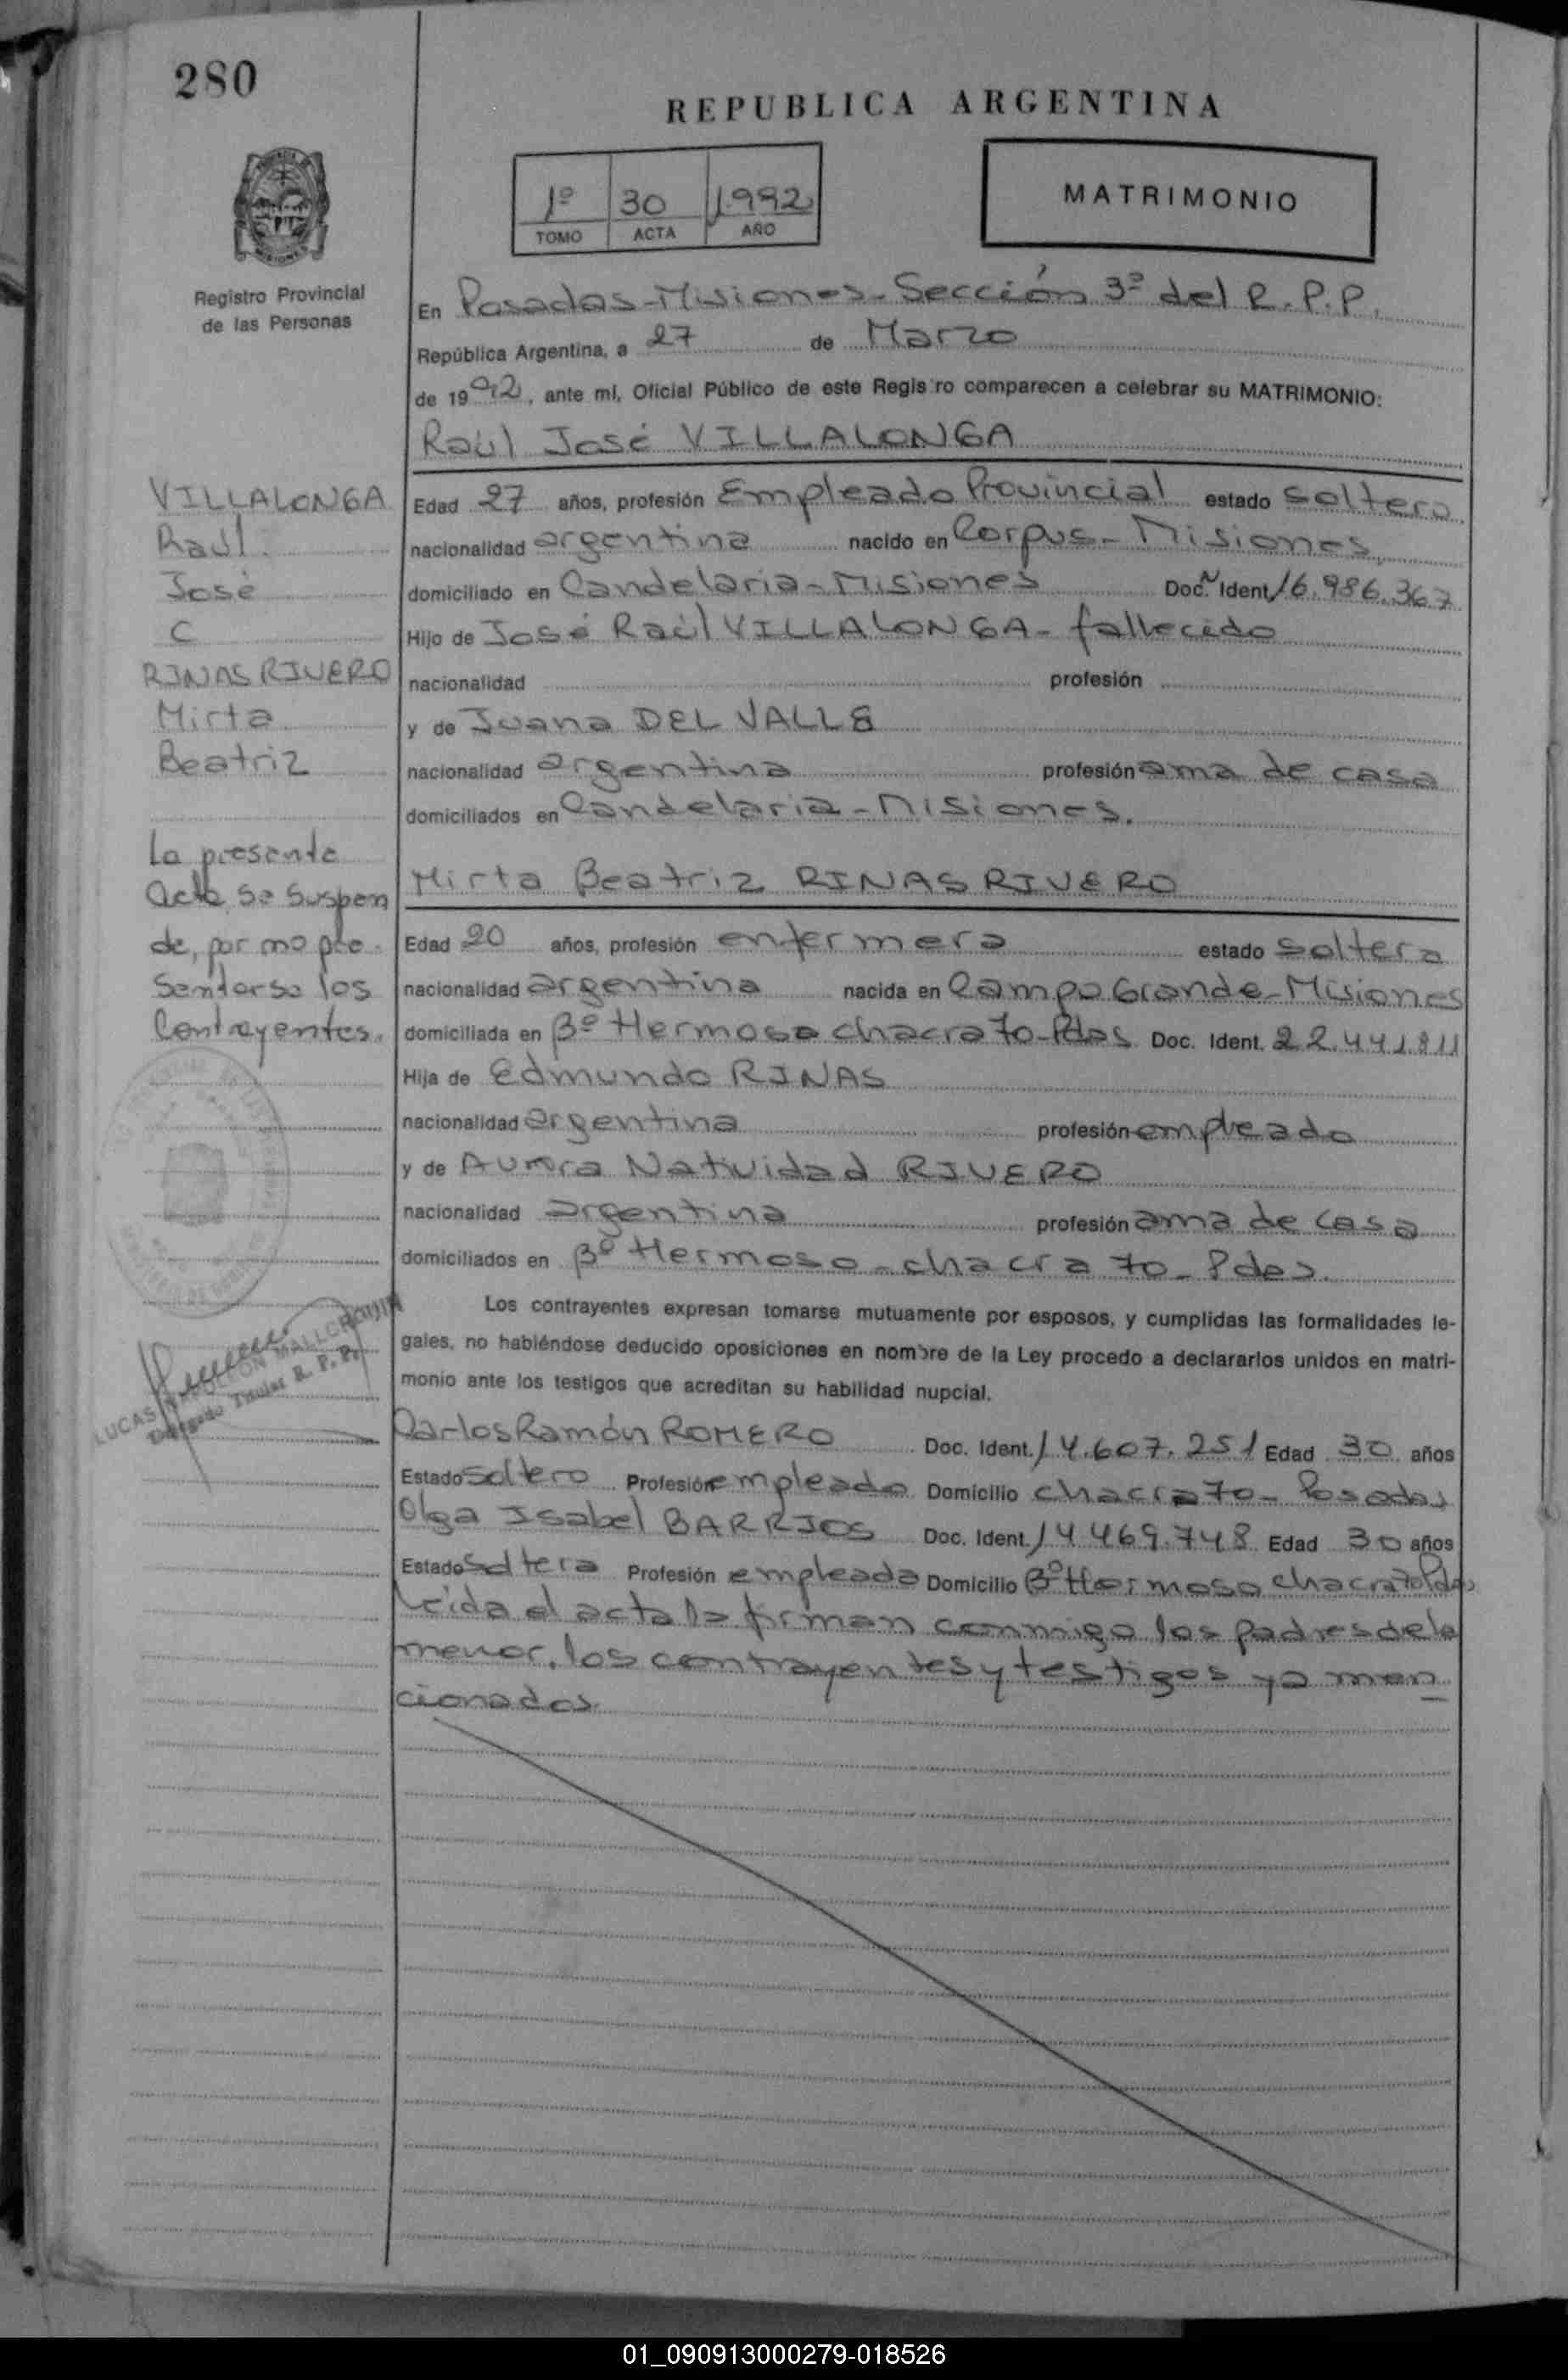 280
REPUBLICA ARGENTINA
1º 30 1.992
TOMO ACTA AÑO
MATRIMONIO
Registro Provincial
de las Personas
En Posadas-Misiones-Sección 3ª del R.P.P.
República Argentina, a 27 de Marzo
de 1992, ante mí, Oficial Público de este Registro comparecen a celebrar su MATRIMONIO:
Raúl José VILLALONGA
Edad 27 años, profesión Empleado Provincial estado soltero
nacionalidad argentina nacido en Corpus-Misiones
domiciliado en Candelaria-Misiones Doc. Ident. 16.986.367
Hijo de José Raúl VILLALONGA-fallecido
nacionalidad profesión
y de Juana DEL VALLE
nacionalidad argentina profesión ama de casa
domiciliados en Candelaria-Misiones.
Mirta Beatriz RINAS RIVERO
Edad 20 años, profesión enfermera estado soltera
nacionalidad argentina nacida en Campo Grande-Misiones
domiciliada en Bº Hermoso chacra 70-Pdas Doc. Ident. 22.441.811
Hija de Edmundo RINAS
nacionalidad argentina profesión empleado
y de Aurora Natividad RIVERO
nacionalidad argentina profesión ama de casa
domiciliados en Bº Hermoso-chacra 70-Pdas.
Los contrayentes expresan tomarse mutuamente por esposos, y cumplidas las formalidades le-
gales, no habiéndose deducido oposiciones en nombre de la Ley procedo a declararlos unidos en matri-
monio ante los testigos que acreditan su habilidad nupcial.
Carlos Ramón ROMERO Doc. Ident. 14.607.251 Edad 30 años
Estado soltero Profesión empleado Domicilio chacra 70-Posadas
Olga Isabel BARRIOS Doc. Ident. 14.469.748 Edad 30 años
Estado soltera Profesión empleada Domicilio Bº Hermoso chacra 70 Pdas
Leida el acta la firman conmigo los padres de la
menor, los contrayentes y testigos ya men
cionados
VILLALONGA
Raúl
José
C
RINAS RIVERO
Mirta
Beatriz
La presente
Acta se suspen
de, por no pre
sentarse los
Contrayentes.
LUCAS RAMON MALLORQUIN
Delegado Titular R. P. P.
01_090913000279-018526